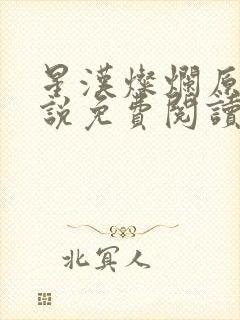 星漢燦爛原
說免費閱讀
北冥人